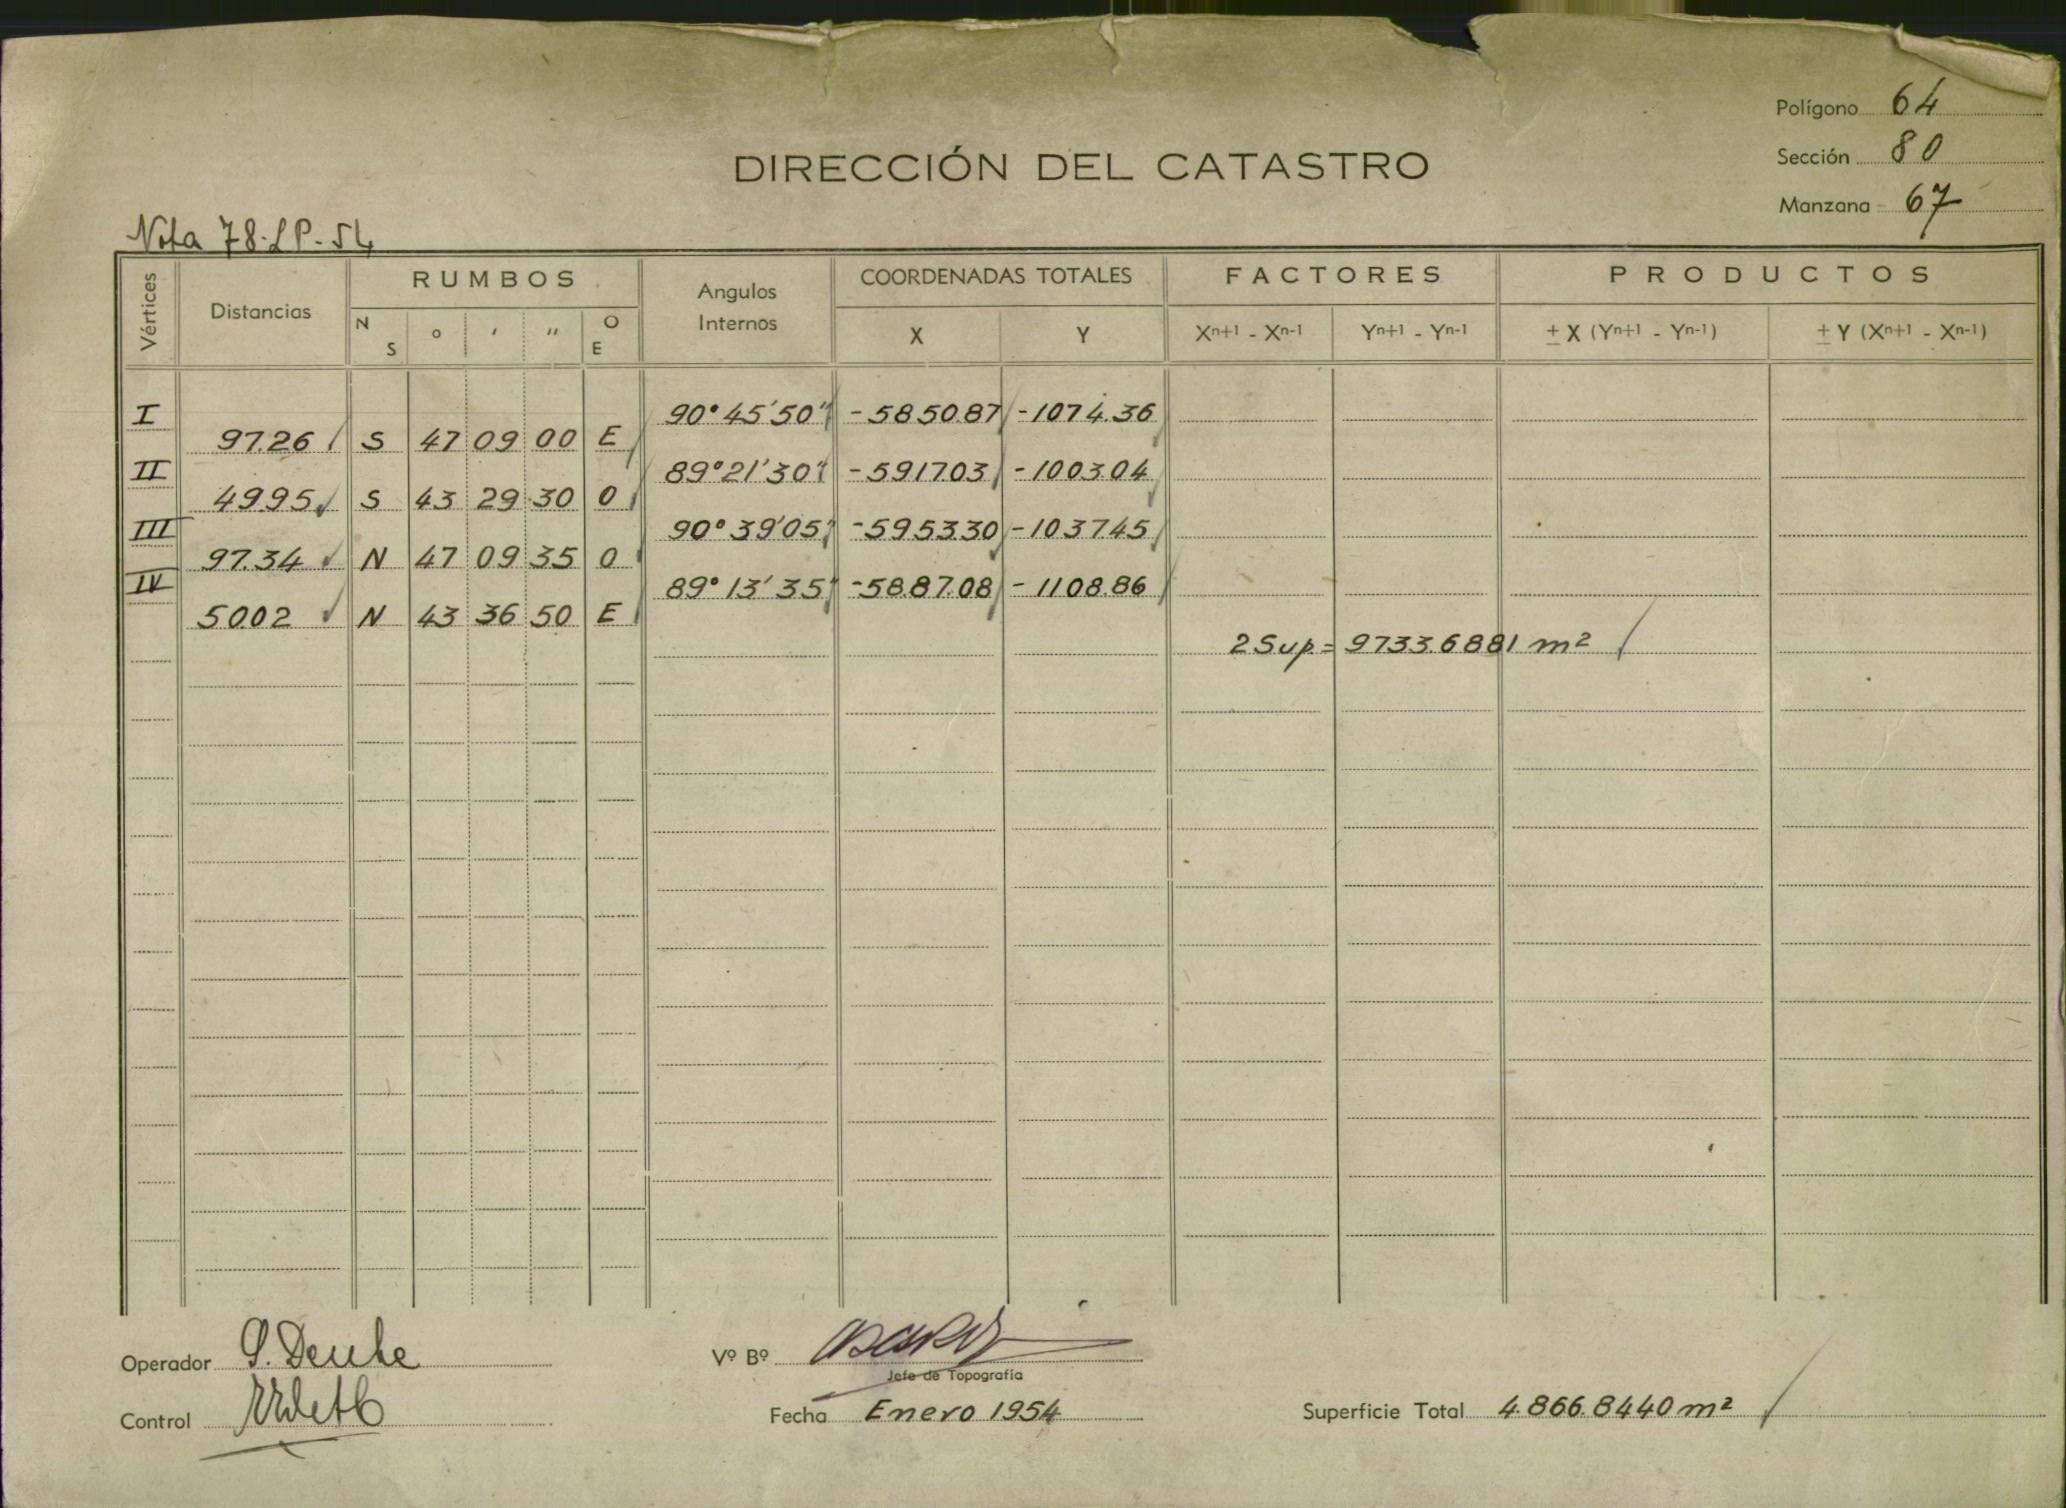 Polígono 64
Sección 80
DIRECCIÓN DEL CATASTRO
Manzana 67
Nota 78-LP-54
Vértices Distancias RUMBOS Angulos Internos COORDENADAS TOTALES FACTORES PRODUCTOS
N S o ' '' O E X Y Xn+1 - Xn-1 Yn+1 - Yn-1 ± X (Yn+1 - Yn-1) ± Y (Xn+1 - Xn-1)
I 90° 45' 50" -5850.87 -1074.36
97.26 S 47 09 00 E
II 89° 21' 30" -5917.03 -1003.04
49.95 S 43 29 30 O
III 90° 39' 05" -5953.30 -1037.45
97.34 N 47 09 35 O
IV 89° 13' 35" -5887.08 -1108.86
50.02 N 43 36 50 E
2 Sup. = 9733.6881 m²
Operador
Vº Bº
Jefe de Topografía
Control
Fecha Enero 1954
Superficie Total 4.866.8440 m²